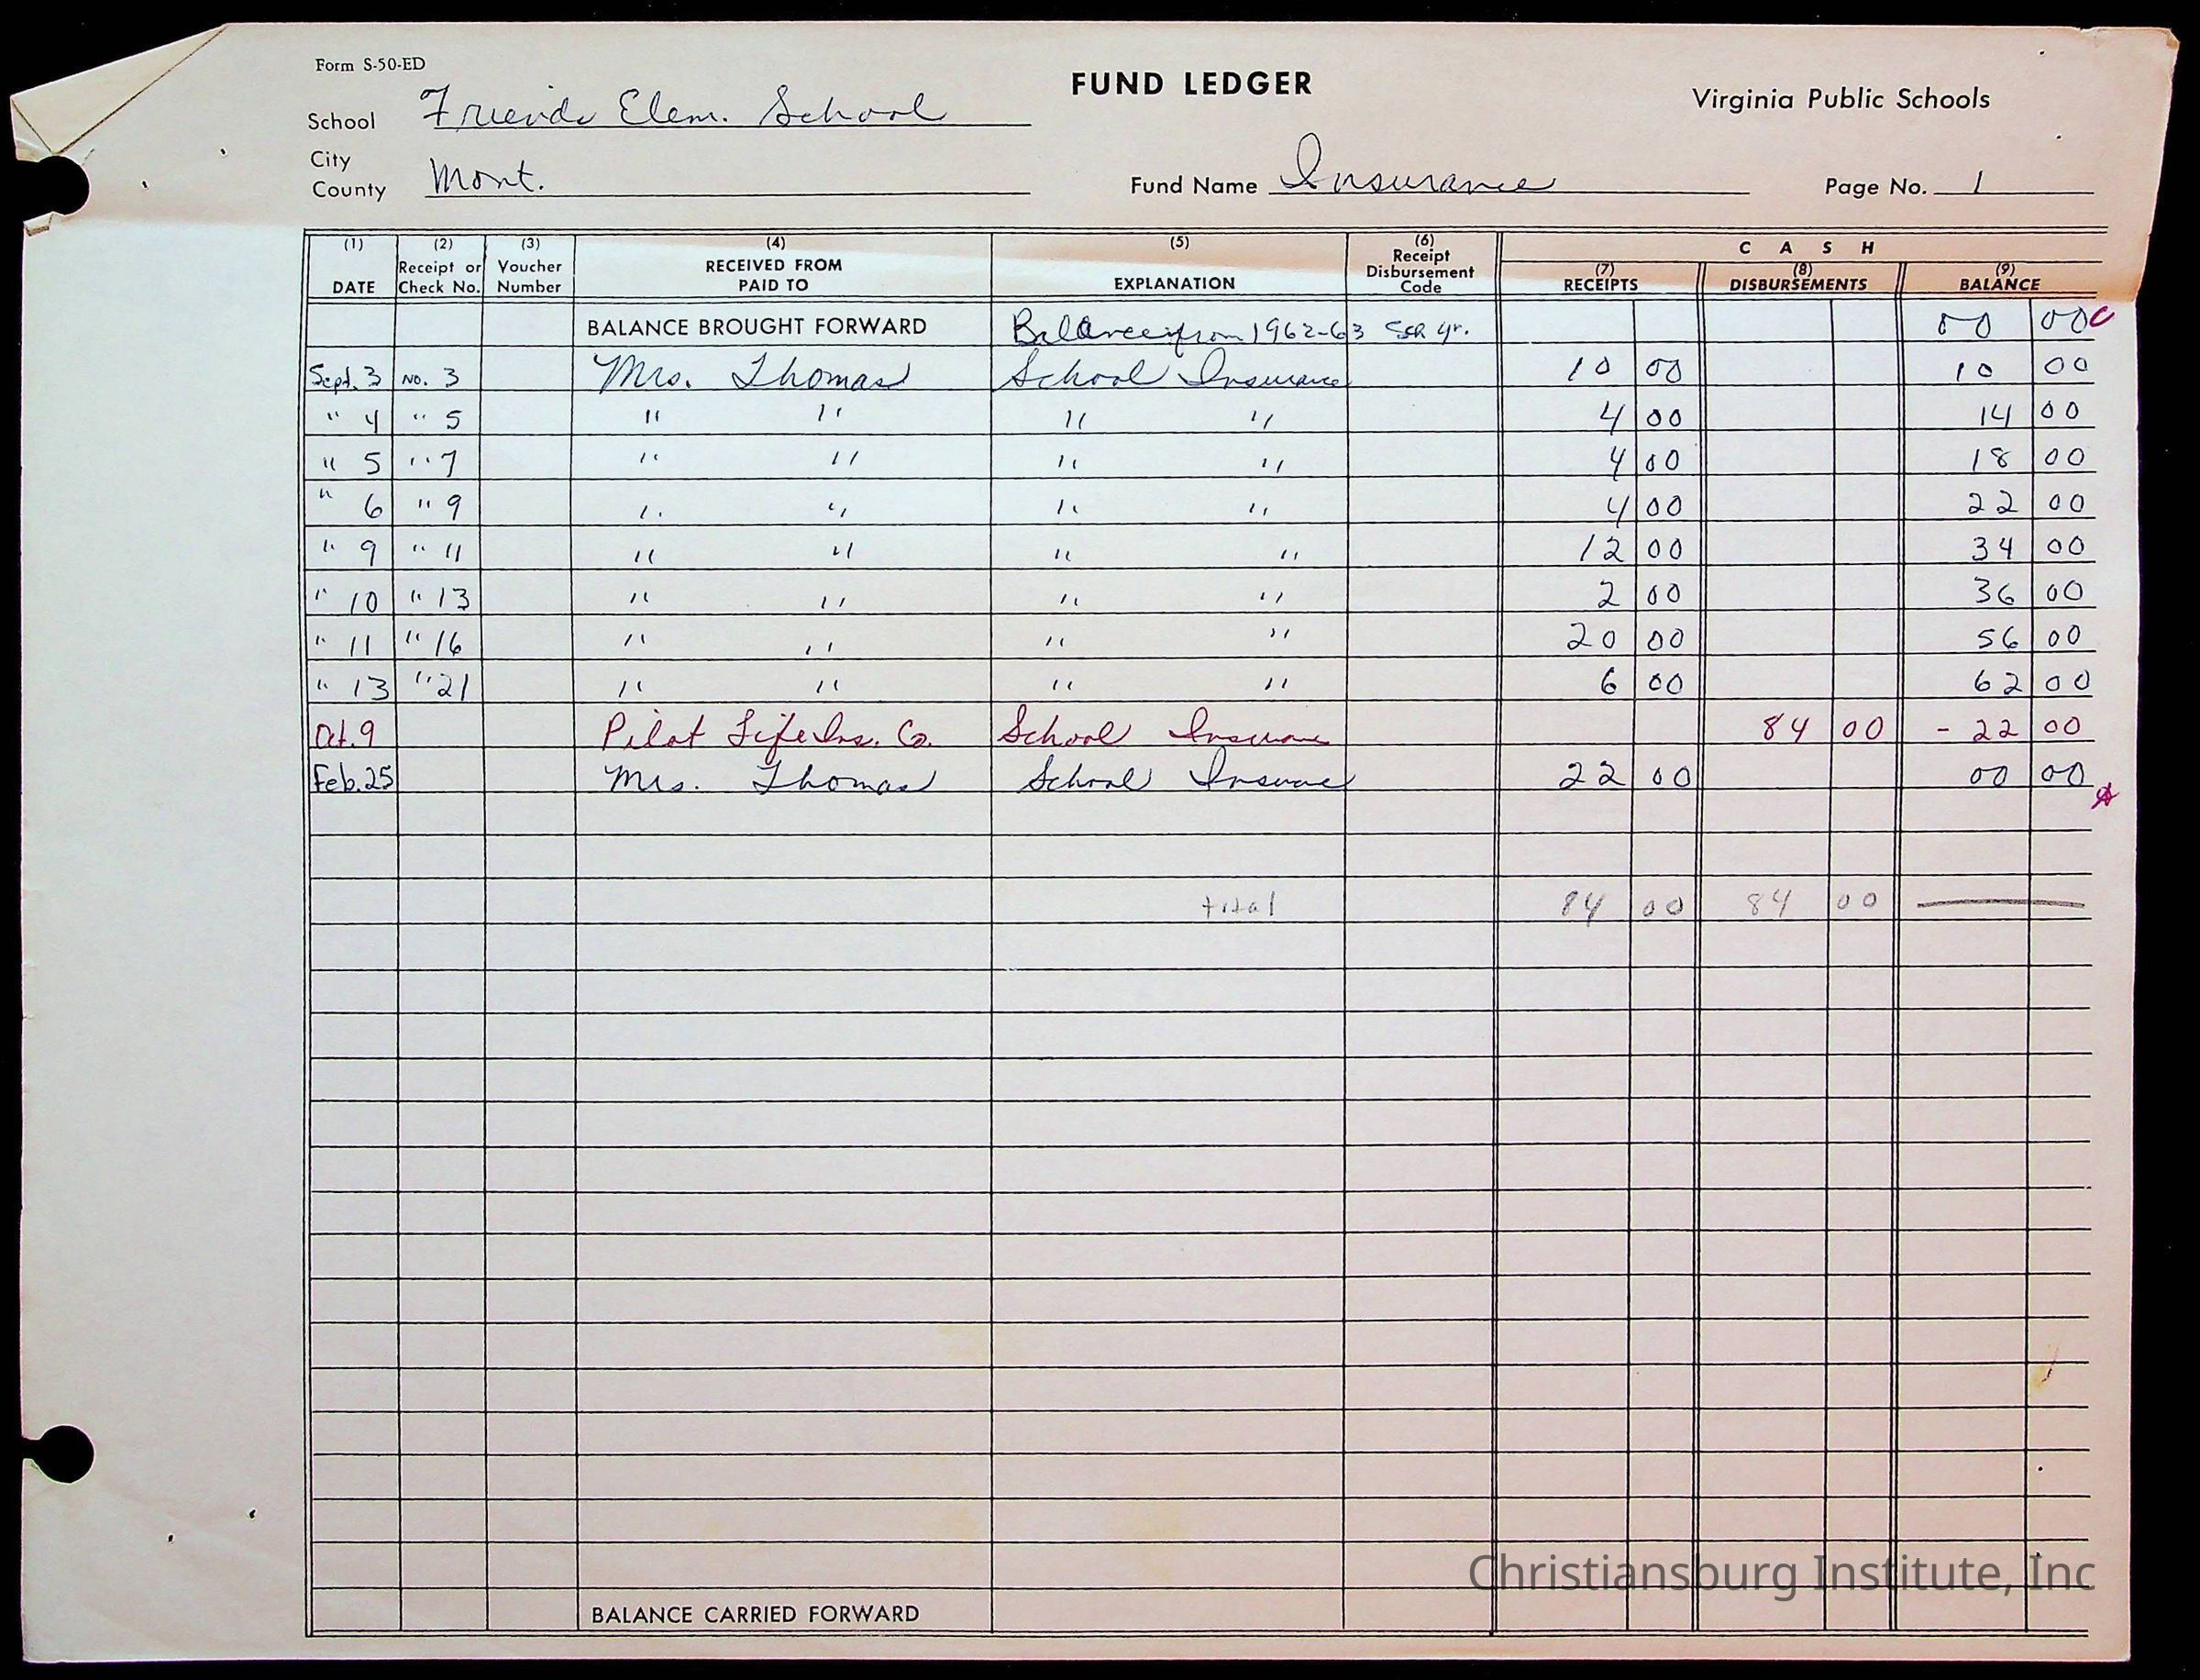 Form S-50-ED
FUND LEDGER
Virginia Public Schools
School Friends Elem. School
City
County Mont.
Fund Name Insurance
Page No. 1
(1) DATE (2) Receipt or Check No. (3) Voucher Number (4) RECEIVED FROM PAID TO (5) EXPLANATION (6) Receipt Disbursement Code CASH (7) RECEIPTS (8) DISBURSEMENTS (9) BALANCE
BALANCE BROUGHT FORWARD Balance from 1962-63 Sch yr. 00 00
Sept. 3 No. 3 Mrs. Thomas School Insurance 10 00 10 00
" 4 " 5 " " " " 4 00 14 00
" 5 " 7 " " " " 4 00 18 00
" 6 " 9 " " " " 4 00 22 00
" 9 " 11 " " " " 12 00 34 00
" 10 " 13 " " " " 2 00 36 00
" 11 " 16 " " " " 20 00 56 00
" 13 " 21 " " " " 6 00 62 00
Oct. 9 Pilot Life Ins. Co. School Insurance 84 00 - 22 00
Feb. 25 Mrs. Thomas School Insurance 22 00 00 00
total 84 00 84 00 —
Christiansburg Institute, Inc
BALANCE CARRIED FORWARD